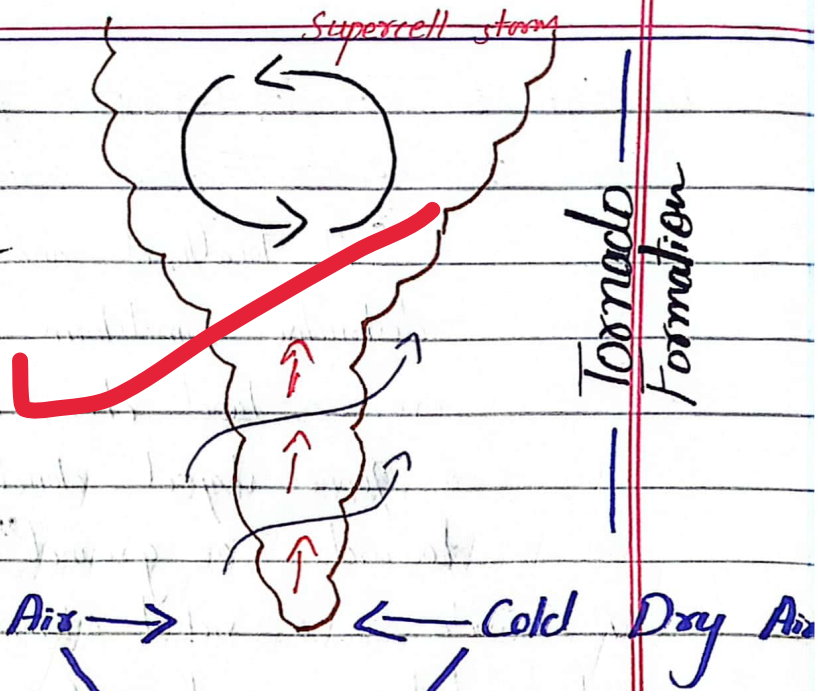 Supercell storm
Tornado
Formation
Air
Cold Dry Air